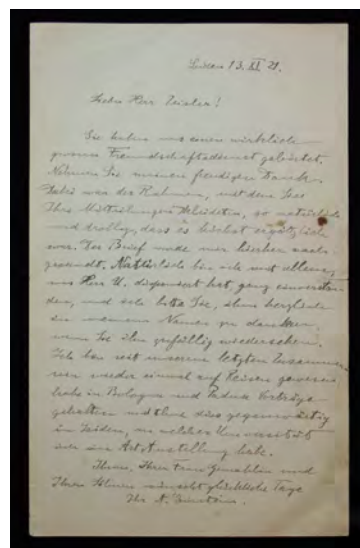 Leiden 13. XI. 21.
Lieber Herr Zeisler!
Sie haben uns einen wirklich
grossen Freundschaftsdienst geleistet.
Nehmen Sie meinen freudigen Dank.
Dabei war der Rahmen, mit dem Sie
Ihre Mitteilungen kleideten, so natürlich
und drollig, dass es höchst ergötzlich
war. Der Brief wurde mir hierher nach-
gesandt. Natürlich bin ich mit allem,
was Herr U. disponiert hat, ganz einverstan-
den, und ich bitte Sie, ihm herzlich
in meinem Namen zu danken,
wenn Sie ihn gefällig wiedersehen.
Ich bin seit unserem letzten Zusammen-
sein wieder einmal auf Reisen gewesen
habe in Bologna und Padua Vorträge
gehalten und thue dies gegenwärtig
in Leiden, an welcher Universität
ich eine Art Anstellung habe.
Ihnen, Ihrer Frau Gemahlin und
Ihren Söhnen wünscht glückliche Tage
Ihr A. Einstein.